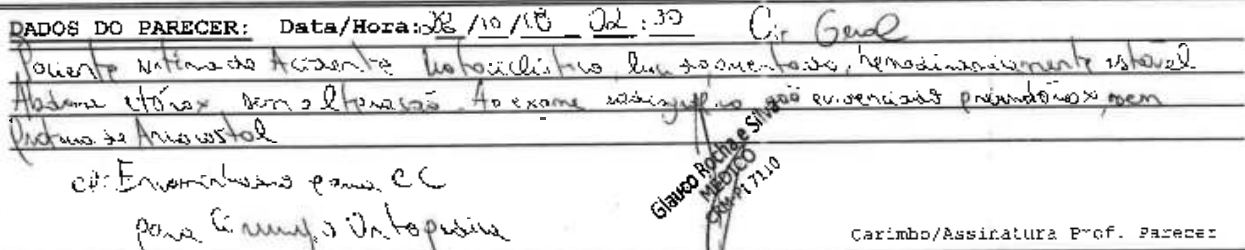 DADOS DO PARECER: Data/Hora: 28/10/18 02:30 Cir Geral
Paciente vítima de Acidente motociclístico, hemodinamicamente estável
Abdome e tórax sem alteração. Ao exame não evidenciado pneumotórax nem
de
Encaminhado para CC
para Cirurgia Ortopédica
Glauco Rocha e Silva
MÉDICO
CRM-PI 7110
Carimbo/Assinatura Prof. Parecer